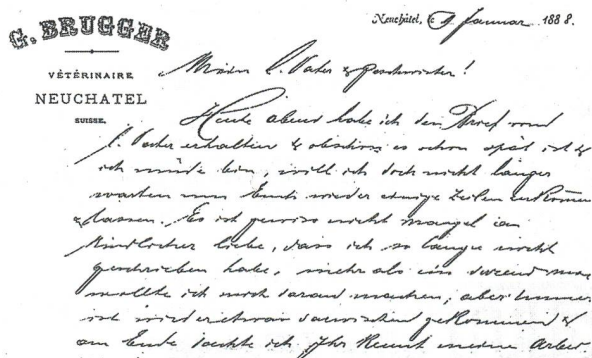 G. BRUGGER
VÉTÉRINAIRE
NEUCHATEL
SUISSE.
Neuchâtel, le 9 Januar 1888.
Meine l. Vater & Geschwister!
Heute abend habe ich den Brief vom
l. Vater erhalten & obschon es schon spät ist &
ich müde bin, will ich doch nicht länger
warten um Euch wieder einige Zeilen zukommen
zu lassen. Es ist gewiss nicht mangel an
kindlicher liebe, dass ich so lange nicht
geschrieben habe, mehr als ein duzend mal
wollte ich mich daran machen, aber immer
ist wieder etwas dazwischen gekommen &
am Ende dachte ich Ihr kennt meine Arbei-